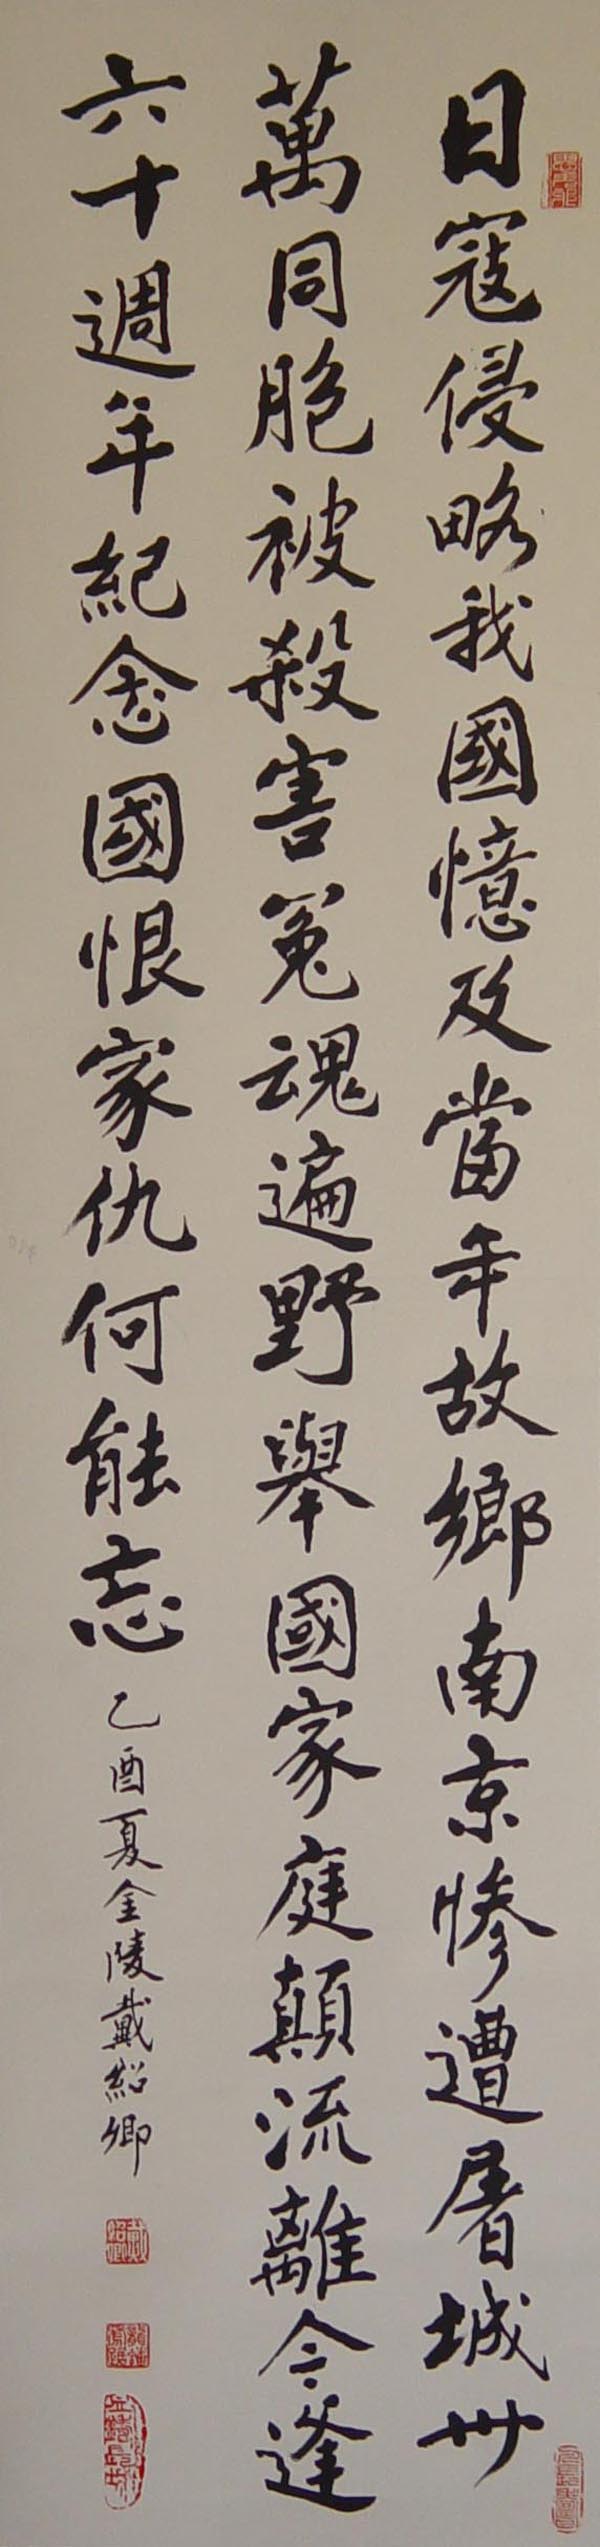 日寇侵略我國憶及當年故鄉南京慘遭屠城卅
萬同胞被殺害冤魂遍野舉國家庭顛流離今逢
六十週年紀念國恨家仇何能忘
乙酉夏金陵戴紹卿